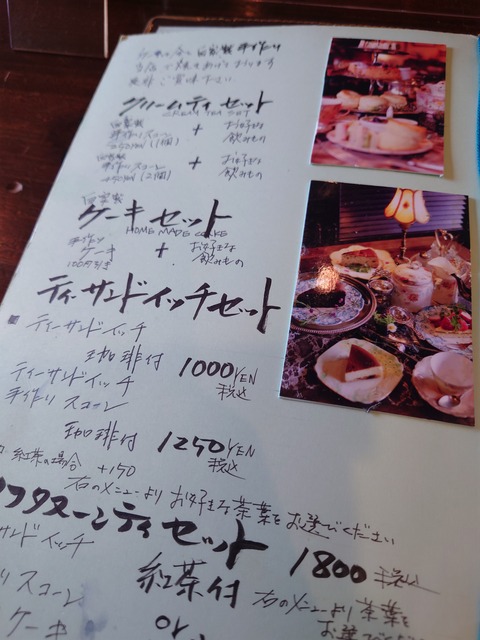 当店で焼きあげております
是非ご賞味下さい
クリームティセット
CREAM TEA SET
自家製
手作りスコーン + お好きな
飲みもの
(1個)
自家製
手作りスコーン + お好きな
+50yen (2個) 飲みもの
自家製
ケーキセット
HOME MADE CAKE
手作り
ケーキ + お好きな
100円引き 飲みもの
ティーサンドイッチセット
ティーサンドイッチ
珈琲付 1000YEN
税込
ティーサンドイッチ
手作りスコーン
珈琲付 1250YEN
税込
紅茶の場合 +150
右のメニューよりお好きな茶葉をお選びください
フタヌーンティセット
サンドイッチ 1800税込
紅茶付
スコーン 右のメニューより茶葉を
ケーキ お選び